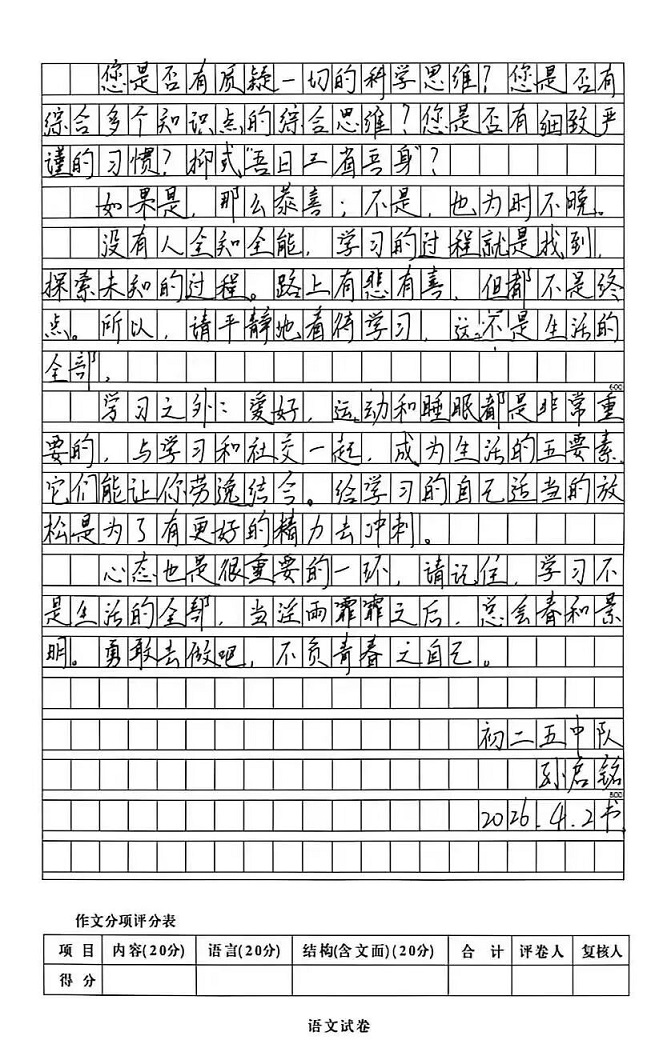 您是否有质疑一切的科学思维？您是否有
综合多个知识点的综合思维？您是否有细致严
谨的习惯？抑或“吾日三省吾身”？
如果是，那么恭喜；不是，也为时不晚。
没有人全知全能，学习的过程就是找到，
探索未知的过程。路上有悲有喜，但都不是终
点。所以，请平静地看待学习，这不是生活的
全部。
600
学习之外：爱好，运动和睡眠都是非常重
要的，与学习和社交一起，成为生活的五要素
它们能让你劳逸结合。给学习的自己适当的放
松是为了有更好的精力去冲刺。
心态也是很重要的一环，请记住，学习不
是生活的全部，当淫雨霏霏之后，总会春和景
明。勇敢去做吧，不负青春之自己。
初二五中队
孙启铭
800
2026.4.2书
作文分项评分表
项目 内容(20分) 语言(20分) 结构(含文面)(20分) 合计 评卷人 复核人
得分
语文试卷